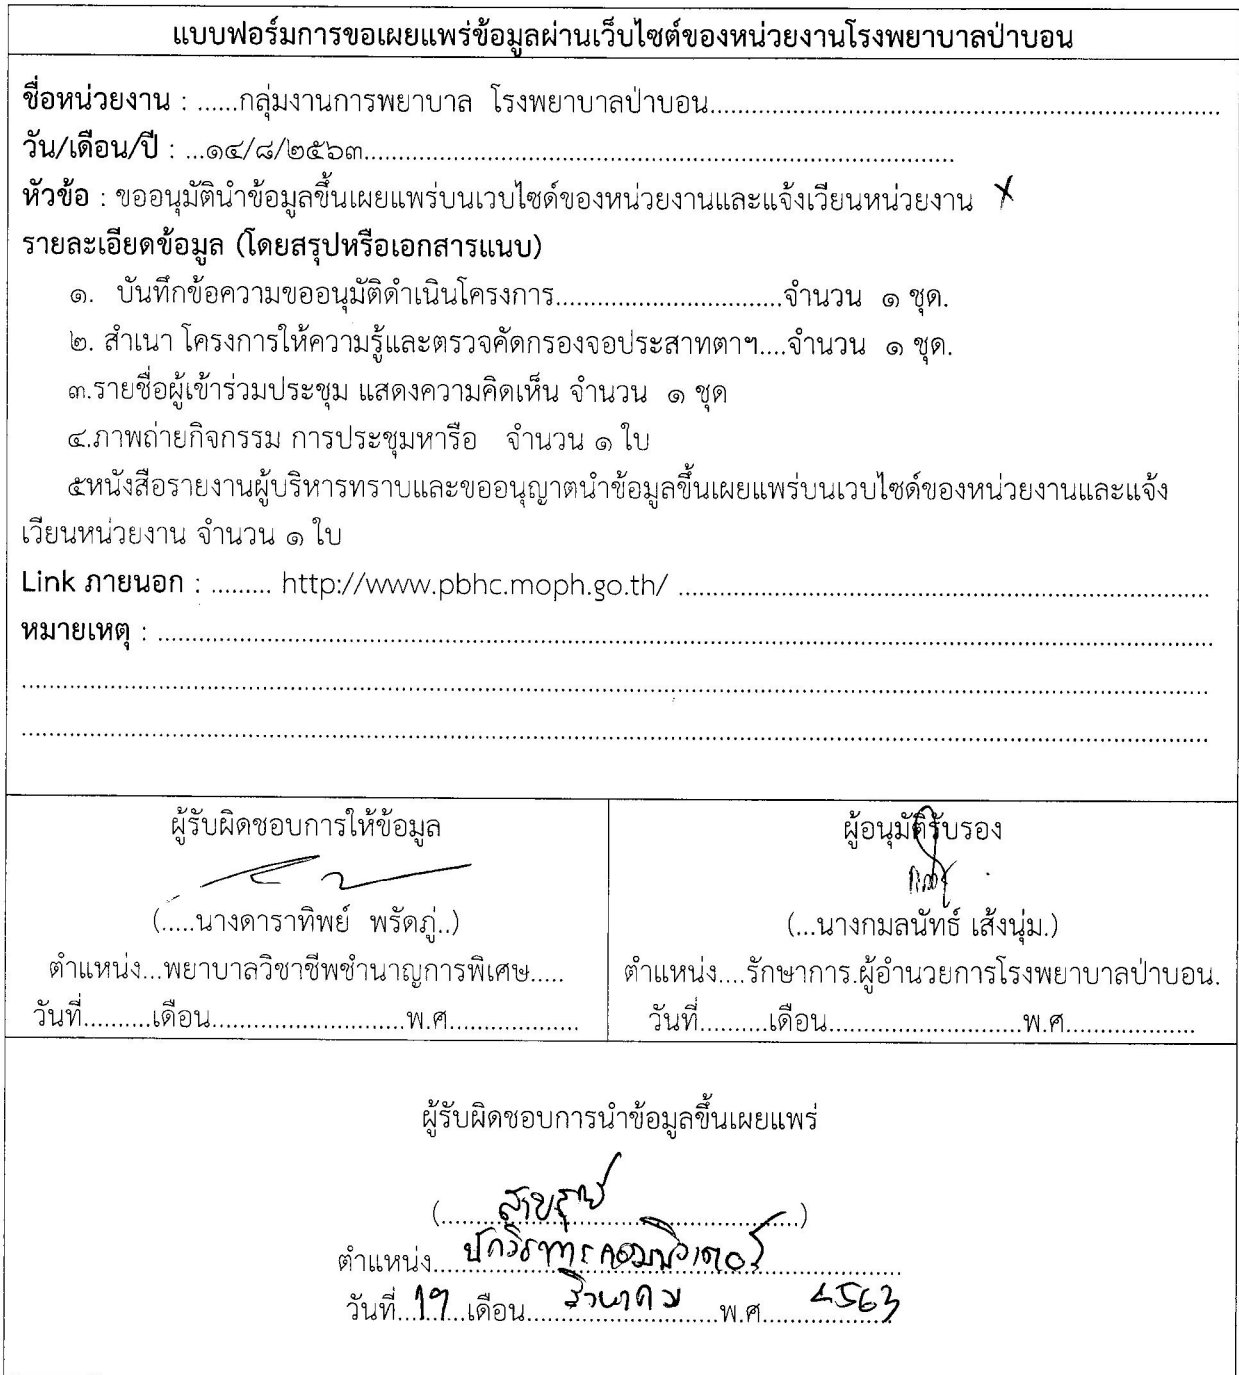 แบบฟอร์มการขอเผยแพร่ข้อมูลผ่านเว็บไซต์ของหน่วยงานโรงพยาบาลป่าบอน
ชื่อหน่วยงาน : ......กลุ่มงานการพยาบาล โรงพยาบาลป่าบอน......
วัน/เดือน/ปี : ...๑๔/๘/๒๕๖๓......
หัวข้อ : ขออนุมัตินำข้อมูลขึ้นเผยแพร่บนเวบไซด์ของหน่วยงานและแจ้งเวียนหน่วยงาน
รายละเอียดข้อมูล (โดยสรุปหรือเอกสารแนบ)
๑. บันทึกข้อความขออนุมัติดำเนินโครงการ......จำนวน ๑ ชุด.
๒. สำเนา โครงการให้ความรู้และตรวจคัดกรองจอประสาทตาฯ....จำนวน ๑ ชุด.
๓.รายชื่อผู้เข้าร่วมประชุม แสดงความคิดเห็น จำนวน ๑ ชุด
๔.ภาพถ่ายกิจกรรม การประชุมหารือ จำนวน ๑ ใบ
๕หนังสือรายงานผู้บริหารทราบและขออนุญาตนำข้อมูลขึ้นเผยแพร่บนเวบไซด์ของหน่วยงานและแจ้ง
เวียนหน่วยงาน จำนวน ๑ ใบ
Link ภายนอก : ......... http://www.pbhc.moph.go.th/ ......
หมายเหตุ : ......
ผู้รับผิดชอบการให้ข้อมูล
(.....นางดาราทิพย์ พรัดภู่..)
ตำแหน่ง...พยาบาลวิชาชีพชำนาญการพิเศษ.....
วันที่..........เดือน............................พ.ศ...................
ผู้อนุมัติรับรอง
(...นางกมลนัทธ์ เส้งนุ่ม.)
ตำแหน่ง....รักษาการ.ผู้อำนวยการโรงพยาบาลป่าบอน.
วันที่..........เดือน............................พ.ศ...................
ผู้รับผิดชอบการนำข้อมูลขึ้นเผยแพร่
ตำแหน่ง...นักวิชาการคอมพิวเตอร์...
วันที่...17...เดือน...สิงหาคม...พ.ศ...2563